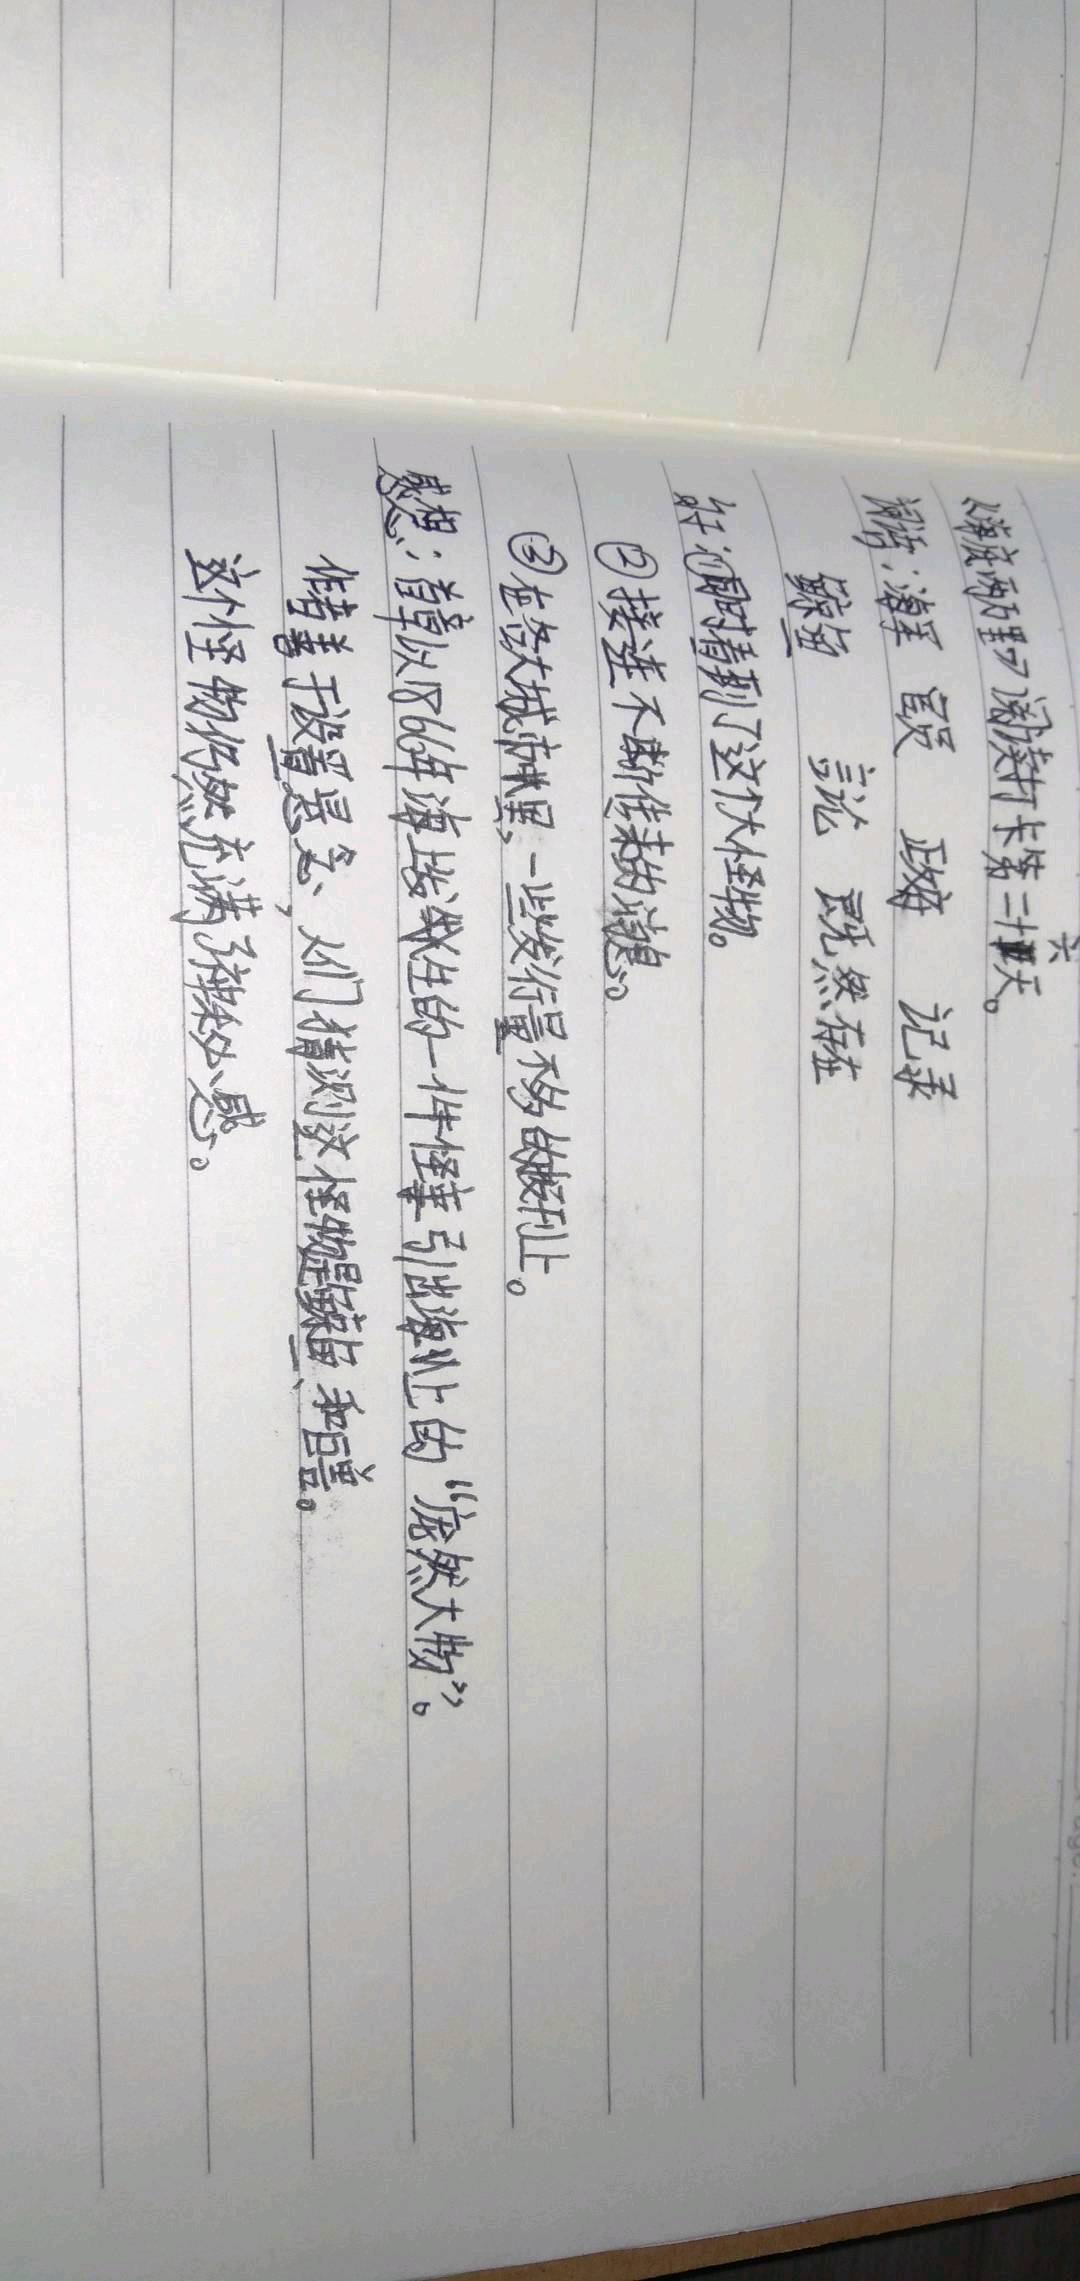 《海底两万里》阅读打卡第二十六天。
词语：海军 官员 政府 记录
鲸鱼 言论 既然存在
好句：①同时看到了这个大怪物。
②接连不断传来的消息。
③在各大城市里，一些发行量不多的报刊上。
感想：首章以1866年海上发生的一件怪事引出海上的“庞然大物”。
作者善于设置悬念、人们猜测这怪物是鲸鱼、和巨兽。
这个怪物仍然充满神秘感。